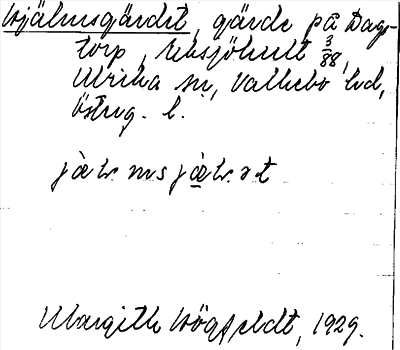 Hjälmsgärdet, gärde på Dags-
torp, Eksjöhult 3/88,
Ulrika sn, Valkebo hd,
Östерg. l.
jæ̀l. ms jæ̀l. ət
Margith Högfeldt, 1929.